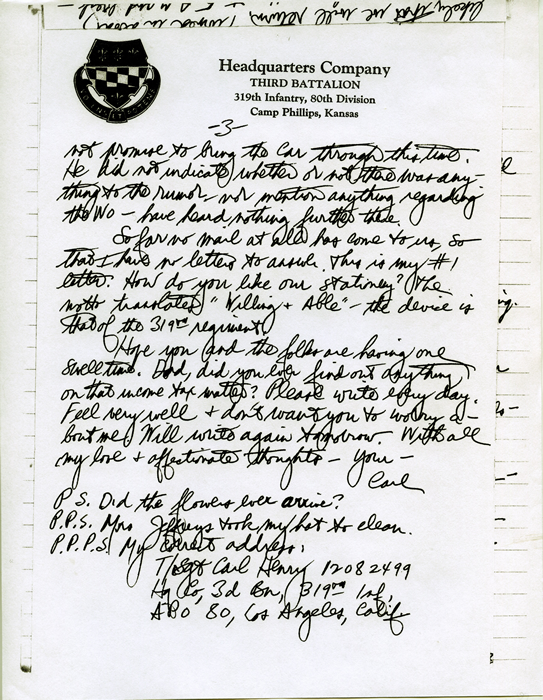 likely that we will return
Headquarters Company
THIRD BATTALION
319th Infantry, 80th Division
Camp Phillips, Kansas
-3-
not promise to bring the car through this time.
He did not indicate whether or not there was any-
thing to the rumor, nor mention anything regarding
the WO – have heard nothing further there.
So far no mail at all has come to us, so
that I have no letters to answer. This is my #1
letter. How do you like our stationery? The
motto translated "Willing + Able" – the device is
that of the 319th regiment.
Hope you and the folks are having one
swell time. Dad, did you ever find out anything
on that income tax matter? Please write every day.
Feel very well + don't want you to worry a-
bout me. Will write again tomorrow. With all
my love + affectionate thoughts – Your –
Carl
P S. Did the flowers ever arrive?
P.P.S. Mrs Jeffreys took my hat to clean.
P.P.P.S. My correct address:
T/Sgt Carl Henry 12082499
Hq Co, 3d Bn, 319th Inf,
APO 80, Los Angeles, Calif